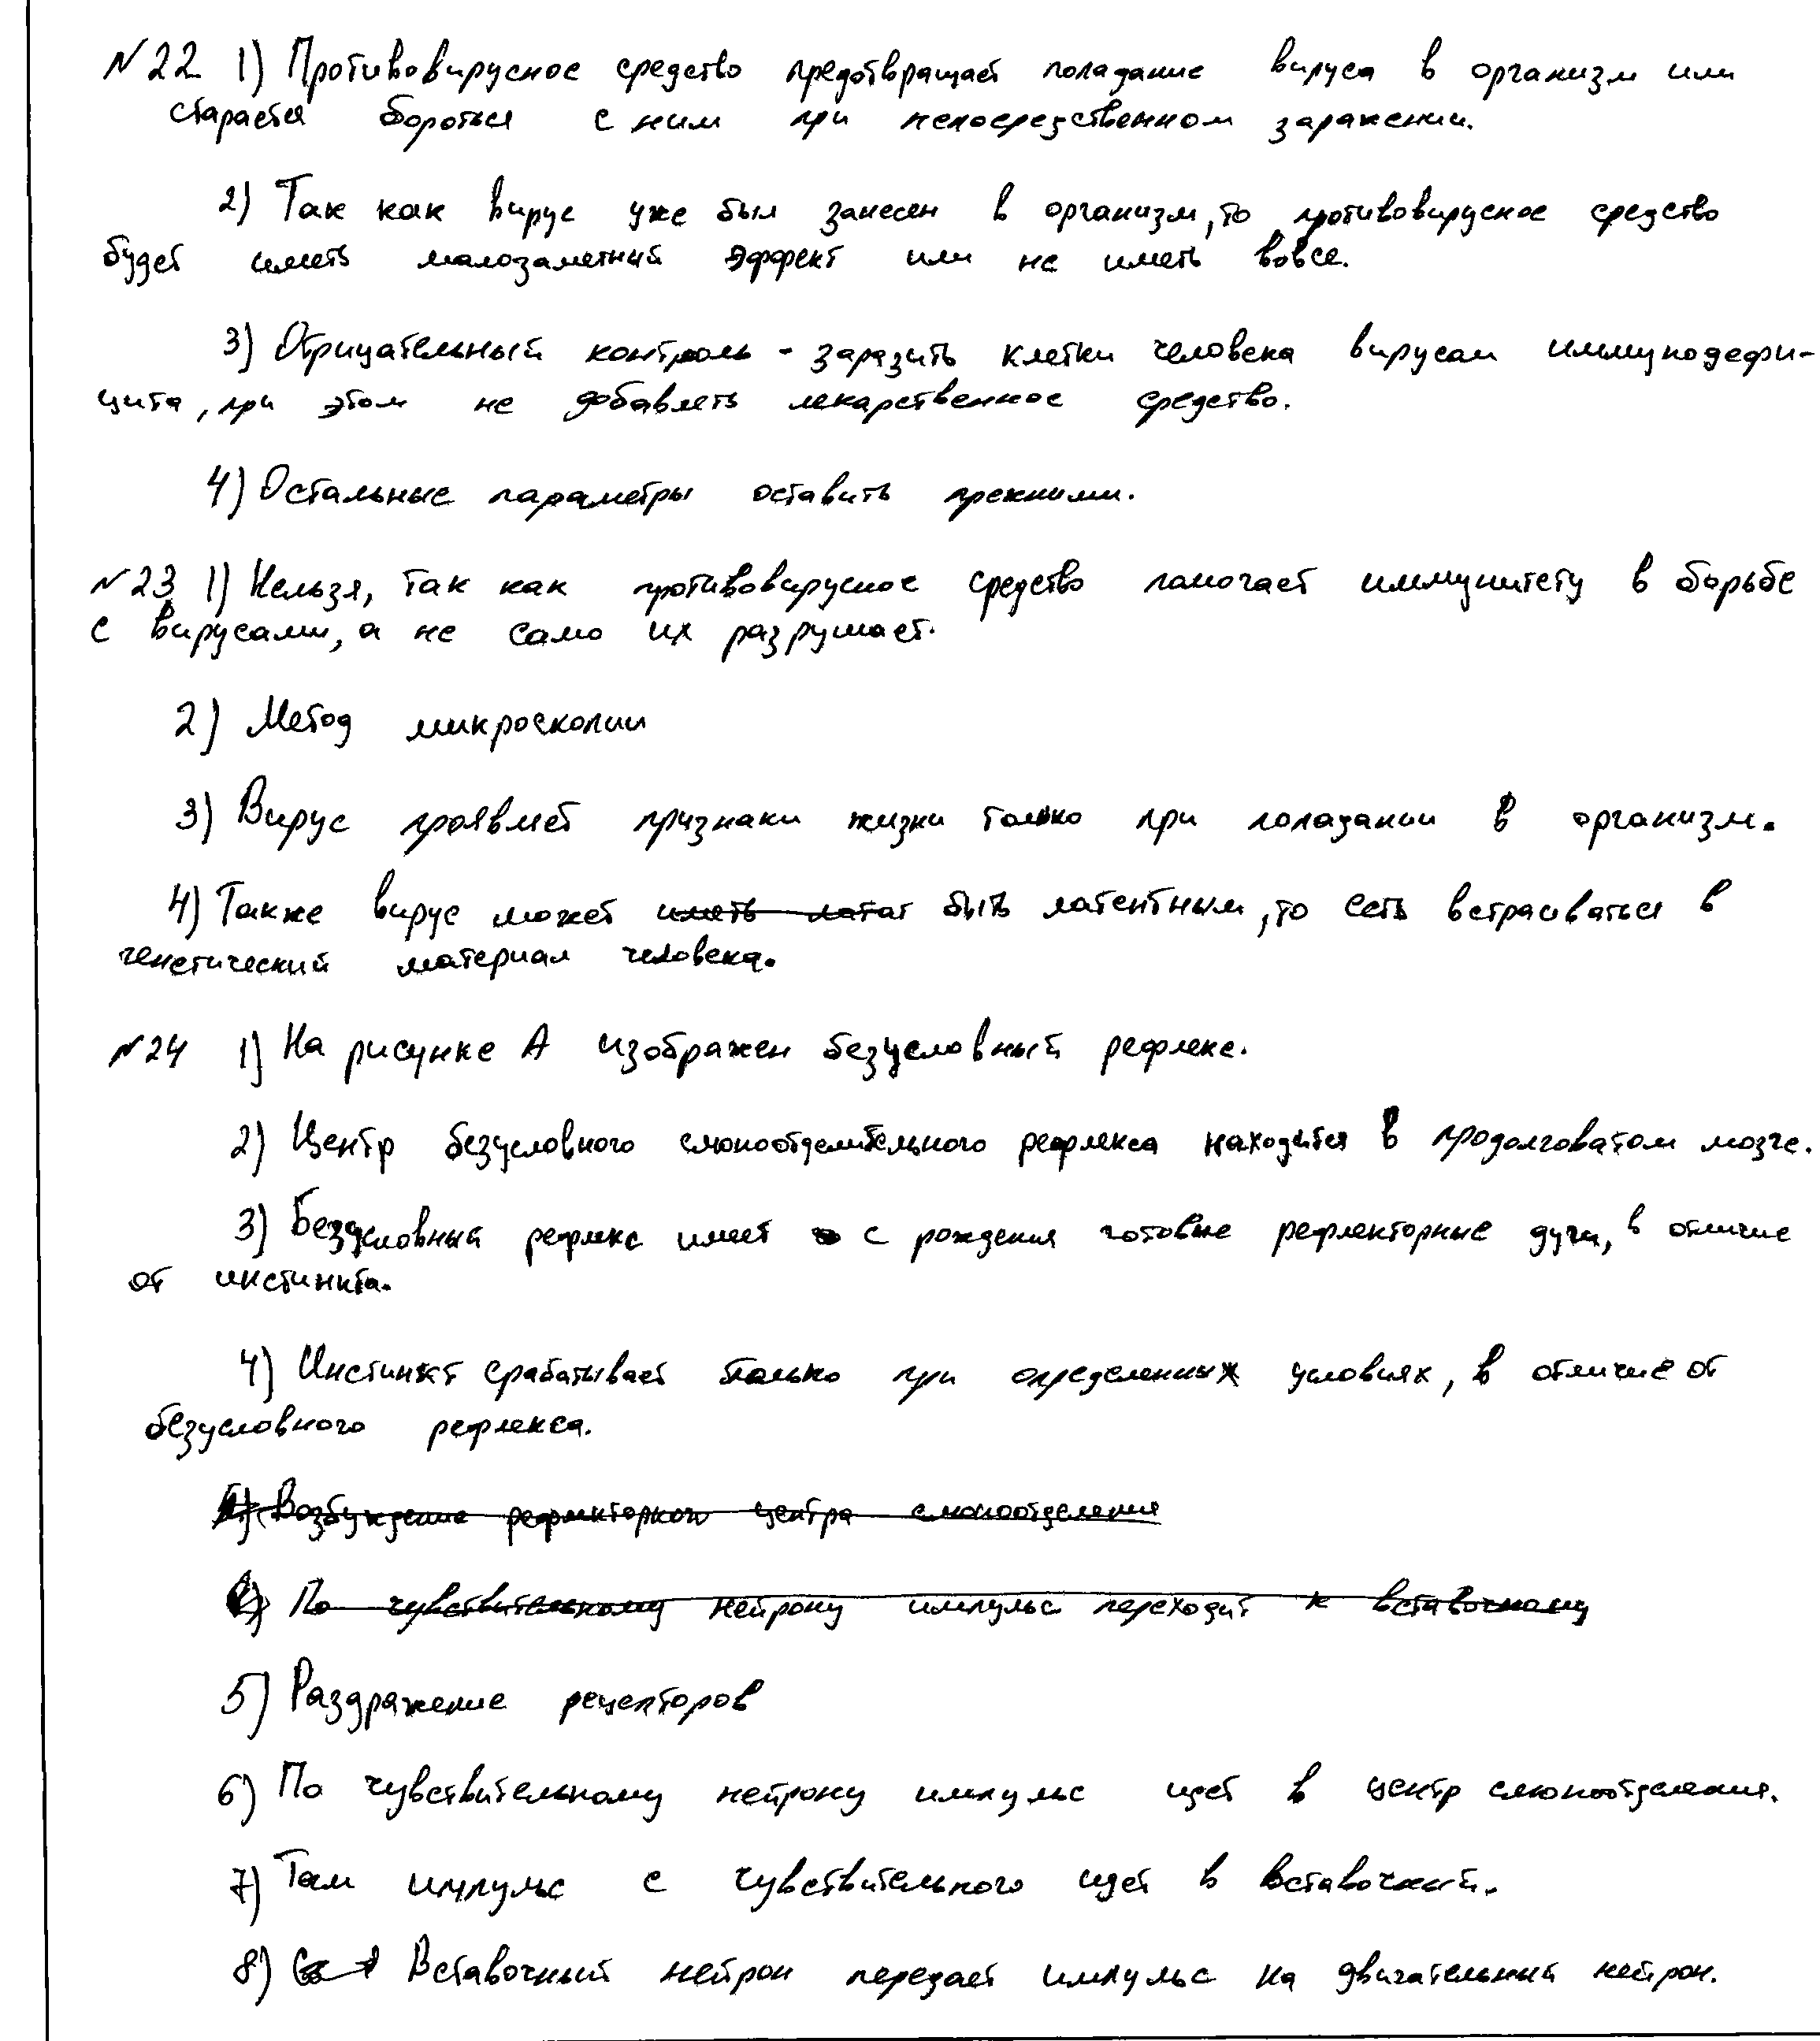 №22 1) Противовирусное средство предотвращает попадание вируса в организм или
старается бороться с ним при непосредственном заражении.
2) Так как вирус уже был занесен в организм, то противовирусное средство
будет иметь малозаметный эффект или не иметь вовсе.
3) Отрицательный контроль - заразить клетки человека вирусом иммунодефи-
цита, при этом не добавлять лекарственное средство.
4) Остальные параметры оставить прежними.
№23 1) Нельзя, так как противовирусное средство помогает иммунитету в борьбе
с вирусами, а не само их разрушает.
2) Метод микроскопии
3) Вирус проявляет признаки жизни только при попадании в организм.
4) Также вирус может иметь латат быть латентным, то есть встраиваться в
генетический материал человека.
№24 1) На рисунке А изображен безусловный рефлекс.
2) Центр безусловного слюноотделительного рефлекса находится в продолговатом мозге.
3) Безусловный рефлекс имеет с рождения готовые рефлекторные дуги, в отличие
от инстинкта.
4) Инстинкт срабатывает только при определенных условиях, в отличие от
безусловного рефлекса.
Возбуждение рефлекторного центра слюноотделения
По чувствительному нейрону импульс переходит к вставочному
5) Раздражение рецепторов
6) По чувствительному нейрону импульс идет в центр слюноотделения.
7) Там импульс с чувствительного идет в вставочный.
8) Вставочный нейрон передает импульс на двигательный нейрон.